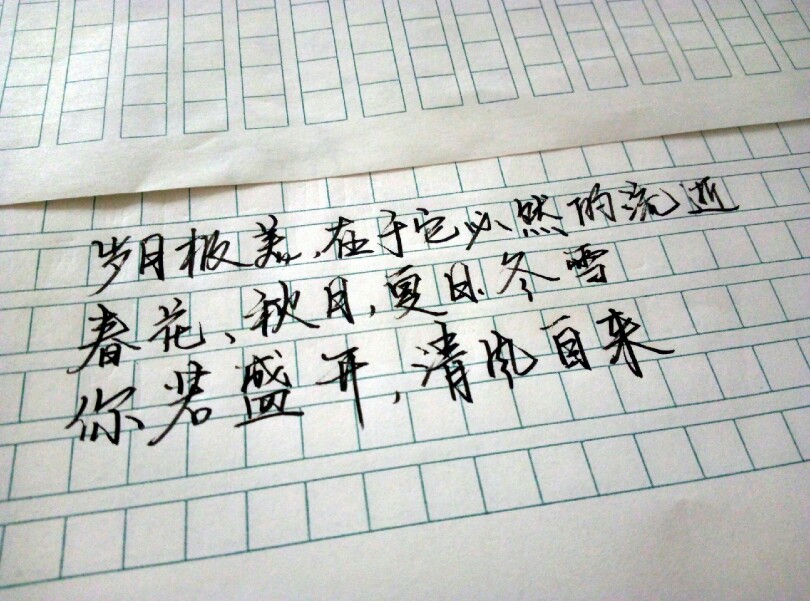 岁月极美,在于它必然的流逝
春花、秋月,夏日、冬雪
你若盛开,清风自来